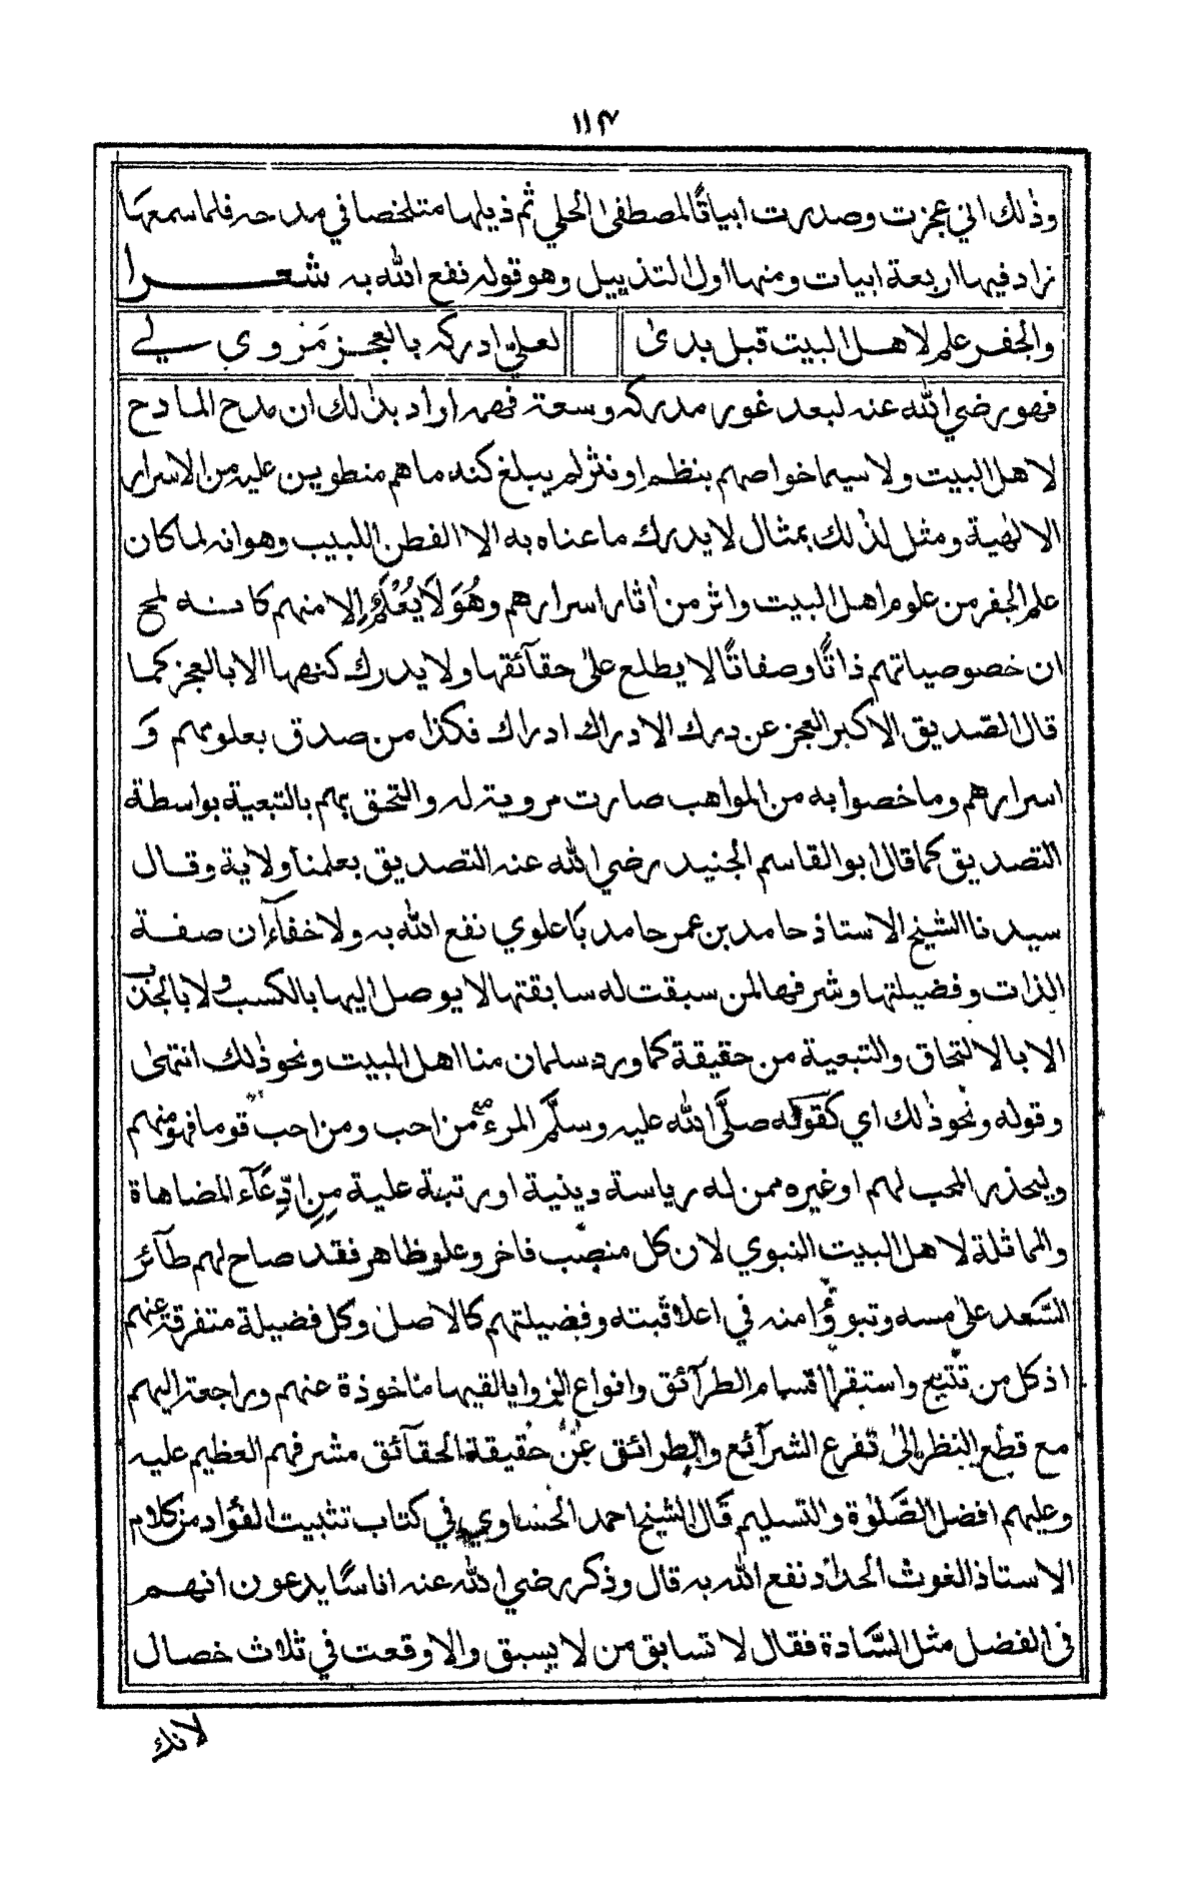 ١١٣
وذلك اني عجزت وصدرت ابياتًا لمصطفى الحلي ثم ذيلها متلخصا في مدحه فلما سمعها
زاد فيها اربعة ابيات ومنها اول التذييل وهو قوله نفع الله به شعرا
والجفر علم لاهل البيت قبل بدى لعلي ادركه بالعجز مَزوي لي
فهو رضي الله عنه لبعد غور مدركه وسعة فهمه اراد بذلك ان مدح المادح
لاهل البيت ولا سيما خواصهم بنظم او نثر لم يبلغ كنه ما هم منطوين عليه من الاسرار
الالهية ومثل لذلك بمثال لا يدرك ما عناه به الا الفطن اللبيب وهو انه لما كان
علم الجفر من علوم اهل البيت واثر من اٰثار اسرارهم وهُوَ لَا يُعْلَمُ إلا منهم كانه لمح
ان خصوصياتهم ذاتًا وصفاتًا لا يطلع على حقآئقها ولا يدرك كنهها الا بالعجز كما
قال الصديق الاكبر العجز عن درك الادراك ادراك فكذا من صدق بعلومهم وَ
اسرارهم وما خصوا به من المواهب صارت مروية له والتحق بهم بالتبعية بواسطة
التصديق كما قال ابو القاسم الجنيد رضي الله عنه التصديق بعلمنا ولاية وقال
سيدنا الشيخ الاستاذ حامد بن عمر حامد باعلوي نفع الله به ولا خفآء ان صفة
الذات وفضيلتها وشرفها لمن سبقت له سابقتها لا يوصل اليها بالكسب ولا بالجذب
الا بالالتحاق والتبعية من حقيقة كما ورد سلمان منا اهل البيت ونحو ذلك انتهى
وقوله ونحو ذلك اي كقوله صلَّى الله عليه وسلَّم المرء مع من احب ومن احب قوما فهو منهم
وليحذر المحب لهم او غيره ممن له رياسة دينية او رتبة علية مِن ادِّعَآء المضاهاة
والمماثلة لاهل البيت النبوي لان كل منصب فاخر وعلو ظاهر فقد صاح لهم طآئر
السَّعد على مسه وتبوؤا منه في اعلا قبته وفضيلتهم كالاصل وكل فضيلة متفرقة عنهم
اذ كل من تتبع واستقرا اقسام الطرآئق وانواع المزوايا لقيها ماخوذة عنهم وراجعة اليهم
مع قطع النظر الى تفرع الشرآئع والطرائق عن حقيقة الحقآئق مشرفهم العظيم عليه
وعليهم افضل الصَّلوٰة والتسليم قال الشيخ احمد الحساوي في كتاب تثبيت الفؤاد من كلام
الاستاذ الغوث الحداد نفع الله به قال وذكر رضي الله عنه اناسًا يدعون انهم
في الفضل مثل السَّادة فقال لا تسابق من لا يسبق والا وقعت في ثلاث خصال
لانك